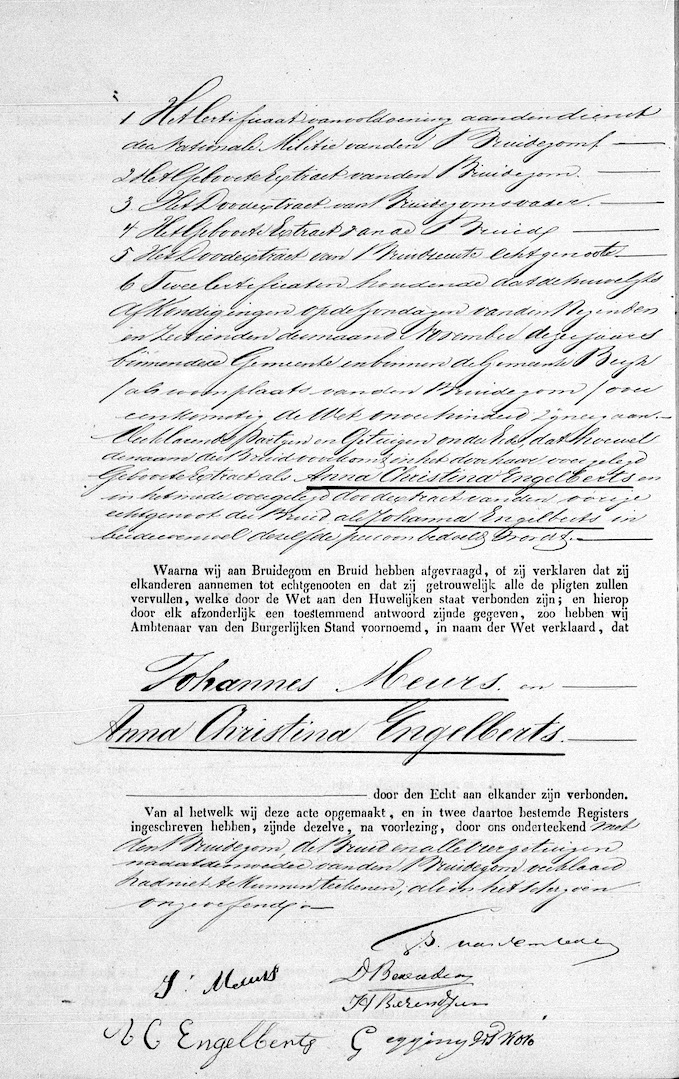 1 Het Certificaat van voldoening aan den dienst
der Nationale Militie van den Bruidegom
2 Het Geboorte Extract van den Bruidegom
3. Het Doodextract van Bruidegoms vader.
4 Het Geboorte Extract van de Bruid
5 Het Doodextract van echtgenoot.
6 Twee Certificaten houdende dat de huwelijks
Afkondigingen op de Zondagen van den Negenden
en Zestienden der maand November dezes jaars
binnen deze Gemeente en binnen de Gemeente Bergh
/ als woonplaats van den Bruidegom / over
eenkomstig de Wet onverhinderd zijn
Verklarende Partijen en Getuigen onder Eede, dat hoewel
de naam der Bruid voorkomt in het door haar overgelegd
Geboorte Extract als Anna Christina Engelberts en
in het mede overgelegd doodextract van den vorige
echtgenoot der Bruid als Johanna Engelberts in
beide dezelfde persoon bedoeld wordt.
Waarna wij aan Bruidegom en Bruid hebben afgevraagd, of zij verklaren dat zij
elkanderen aannemen tot echtgenooten en dat zij getrouwelijk alle de pligten zullen
vervullen, welke door de Wet aan den Huwelijken staat verbonden zijn; en hierop
door elk afzonderlijk een toestemmend antwoord zijnde gegeven, zoo hebben wij
Ambtenaar van den Burgerlijken Stand voornoemd, in naam der Wet verklaard, dat
Johannes Meurs. en
Anna Christina Engelberts.
door den Echt aan elkander zijn verbonden.
Van al hetwelk wij deze acte opgemaakt, en in twee daartoe bestemde Registers
ingeschreven hebben, zijnde dezelve, na voorlezing, door ons onderteekend met
den Bruidegom, de Bruid en alle vier getuigen
nadat de moeder van den Bruidegom verklaard
had niet te kunnen teekenen, als in het schrijven
ongeoefend.
J. Meurs
H Berendsen
A C Engelberts